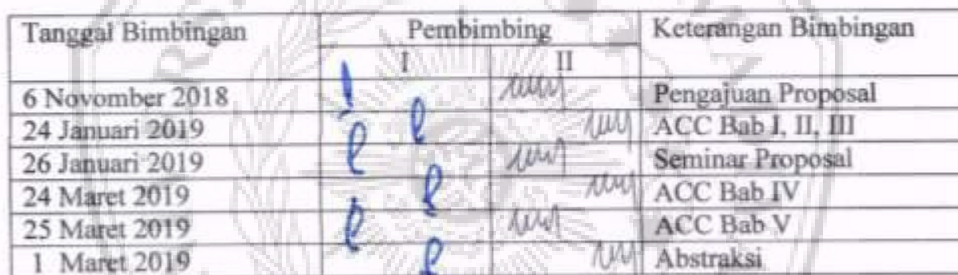 Tanggal Bimbingan Pembimbing Keterangan Bimbingan
I II
6 Novomber 2018 Pengajuan Proposal
24 Januari 2019 ACC Bab I, II, III
26 Januari 2019 Seminar Proposal
24 Maret 2019 ACC Bab IV
25 Maret 2019 ACC Bab V
1 Maret 2019 Abstraksi